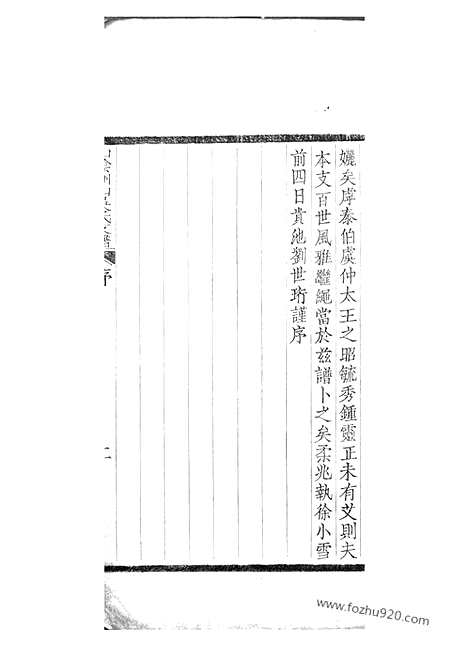 孅矣虖泰伯虞仲太王之昭毓秀鍾靈正未有艾則夫
本支百世風雅繼繩當於兹譜卜之矣柔兆執徐小雪
前四日貴池劉世珩謹序
序
二
www.fozhu920.com